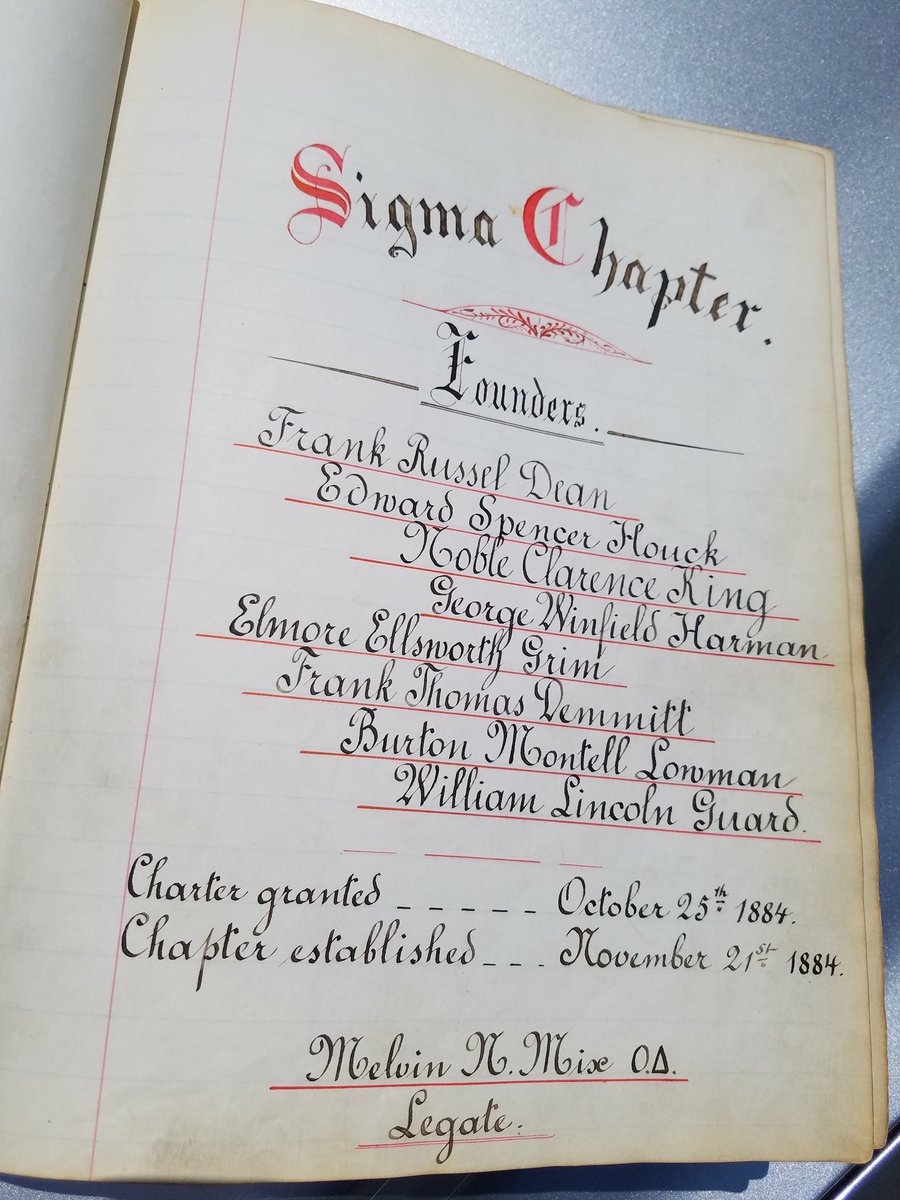 Sigma Chapter.
Founders.
Frank Russel Dean
Edward Spencer Houck
Noble Clarence King
George Winfield Harman
Elmore Ellsworth Grim
Frank Thomas Demmitt
Burton Montell Lowman
William Lincoln Guard.
Charter granted _ _ _ _ _ October 25th 1884.
Chapter established _ _ _ November 21st 1884.
Melvin N. Mix O.Δ.
Legate.